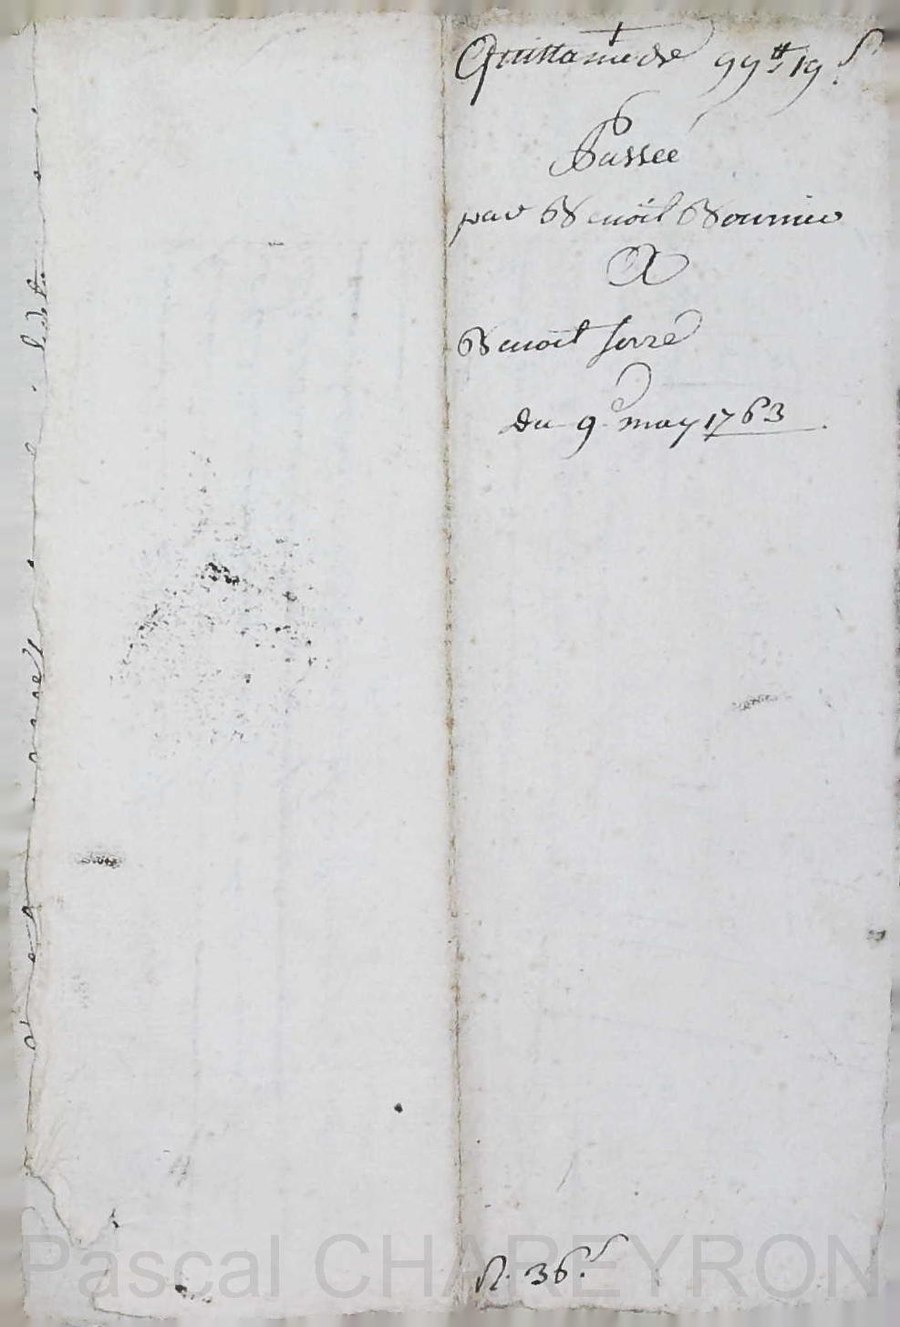 Quittance de 99tt 19 s.
Passée
par Benoit Bounie
A
Benoit serre
Du 9 may 1763
N. 36.s
Pascal CHAREYRON